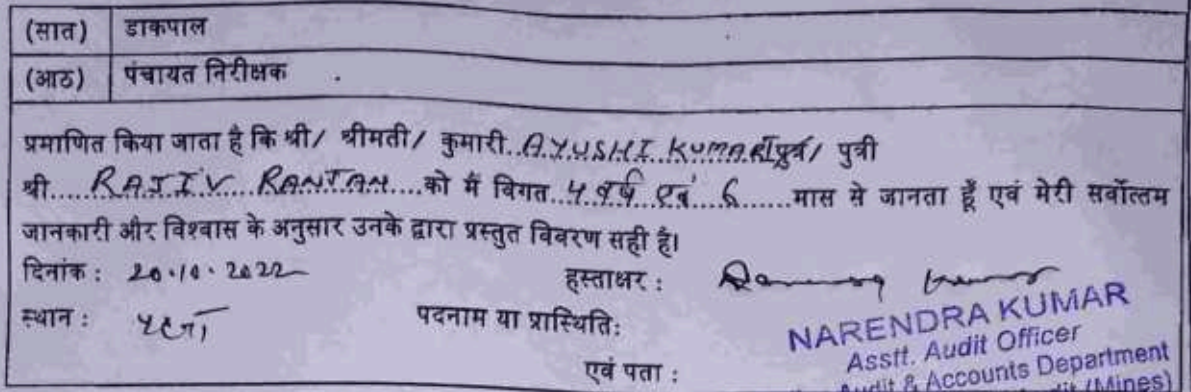 (सात) डाकपाल
(आठ) पंचायत निरीक्षक .
प्रमाणित किया जाता है कि श्री/ श्रीमती/ कुमारी..AYUSHI KUMARI पुत्र/ पुत्री
श्री.....RAJIV RANJAN....को मैं विगत..4 वर्ष एवं 6......मास से जानता हूँ एवं मेरी सर्वोत्तम
जानकारी और विश्वास के अनुसार उनके द्वारा प्रस्तुत विवरण सही है।
दिनांक : 20.10.2022 हस्ताक्षर :
स्थान : पटना पदनाम या प्रास्थिति:
NARENDRA KUMAR
Asstt. Audit Officer
एवं पता : Audit & Accounts Department
(Mines)